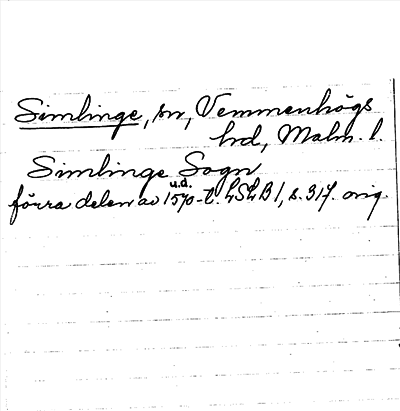 Simlinge, sn, Vemmenhögs
hd, Malm. l.
Simlinge Sogn
u.d.
förra delen av 1570-t. LSLB 1, s. 317. orig.